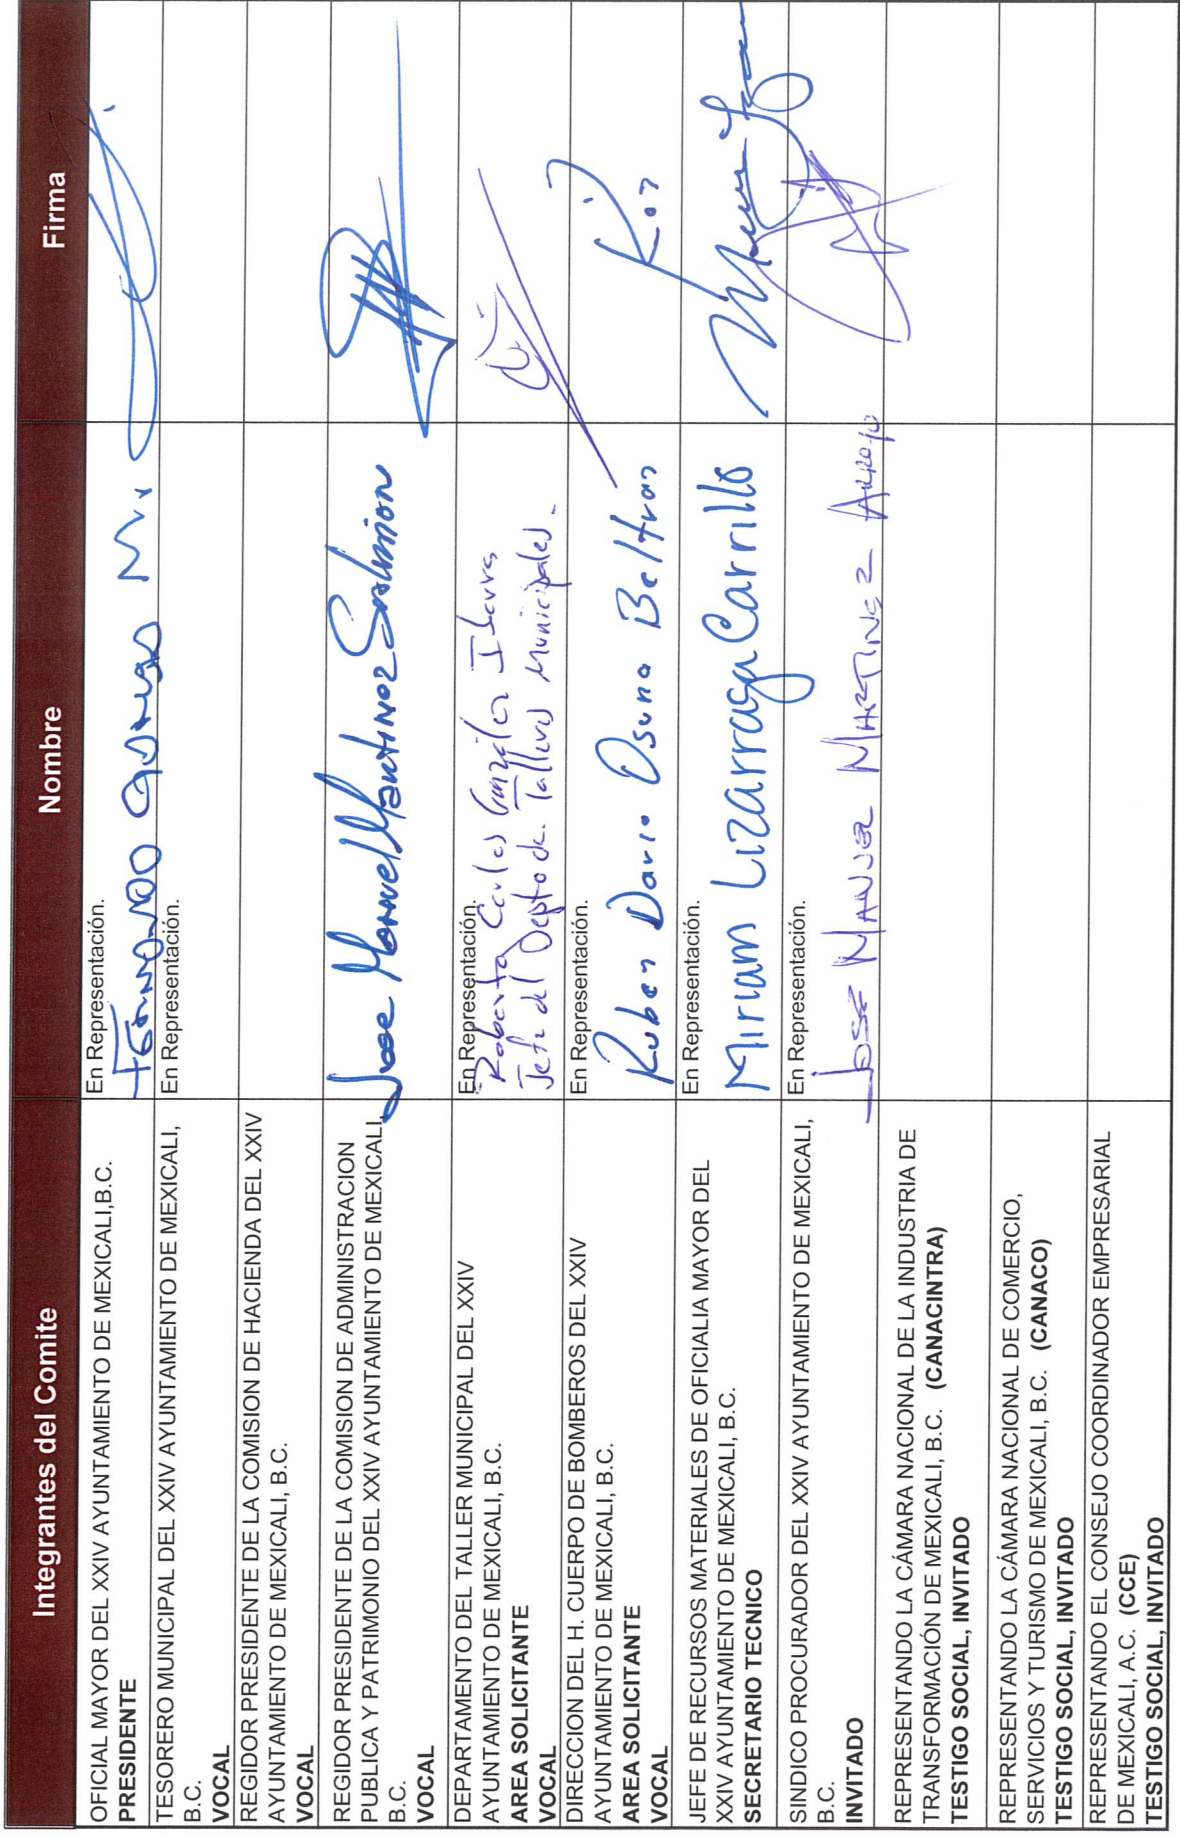 Integrantes del Comite
Nombre
Firma
OFICIAL MAYOR DEL XXIV AYUNTAMIENTO DE MEXICALI,B.C.
PRESIDENTE
En Representación.
TESORERO MUNICIPAL DEL XXIV AYUNTAMIENTO DE MEXICALI,
B.C.
VOCAL
En Representación.
REGIDOR PRESIDENTE DE LA COMISION DE HACIENDA DEL XXIV
AYUNTAMIENTO DE MEXICALI, B.C.
VOCAL
REGIDOR PRESIDENTE DE LA COMISION DE ADMINISTRACION
PUBLICA Y PATRIMONIO DEL XXIV AYUNTAMIENTO DE MEXICALI,
B.C.
VOCAL
Jose Manuel Martinez Salmion
DEPARTAMENTO DEL TALLER MUNICIPAL DEL XXIV
AYUNTAMIENTO DE MEXICALI, B.C.
AREA SOLICITANTE
VOCAL
En Representación.
Roberto Carlos González Ibarra
Jefe del Depto de. Talleres Municipales.
DIRECCION DEL H. CUERPO DE BOMBEROS DEL XXIV
AYUNTAMIENTO DE MEXICALI, B.C.
AREA SOLICITANTE
VOCAL
En Representación.
Ruben Dario Osuna Beltran
JEFE DE RECURSOS MATERIALES DE OFICIALIA MAYOR DEL
XXIV AYUNTAMIENTO DE MEXICALI, B.C.
SECRETARIO TECNICO
En Representación.
Miriam Lizarraga Carrillo
SINDICO PROCURADOR DEL XXIV AYUNTAMIENTO DE MEXICALI,
B.C.
INVITADO
En Representación.
JOSE MANUEL MARTINEZ ARROYO
REPRESENTANDO LA CÁMARA NACIONAL DE LA INDUSTRIA DE
TRANSFORMACIÓN DE MEXICALI, B.C. (CANACINTRA)
TESTIGO SOCIAL, INVITADO
REPRESENTANDO LA CÁMARA NACIONAL DE COMERCIO,
SERVICIOS Y TURISMO DE MEXICALI, B.C. (CANACO)
TESTIGO SOCIAL, INVITADO
REPRESENTANDO EL CONSEJO COORDINADOR EMPRESARIAL
DE MEXICALI, A.C. (CCE)
TESTIGO SOCIAL, INVITADO